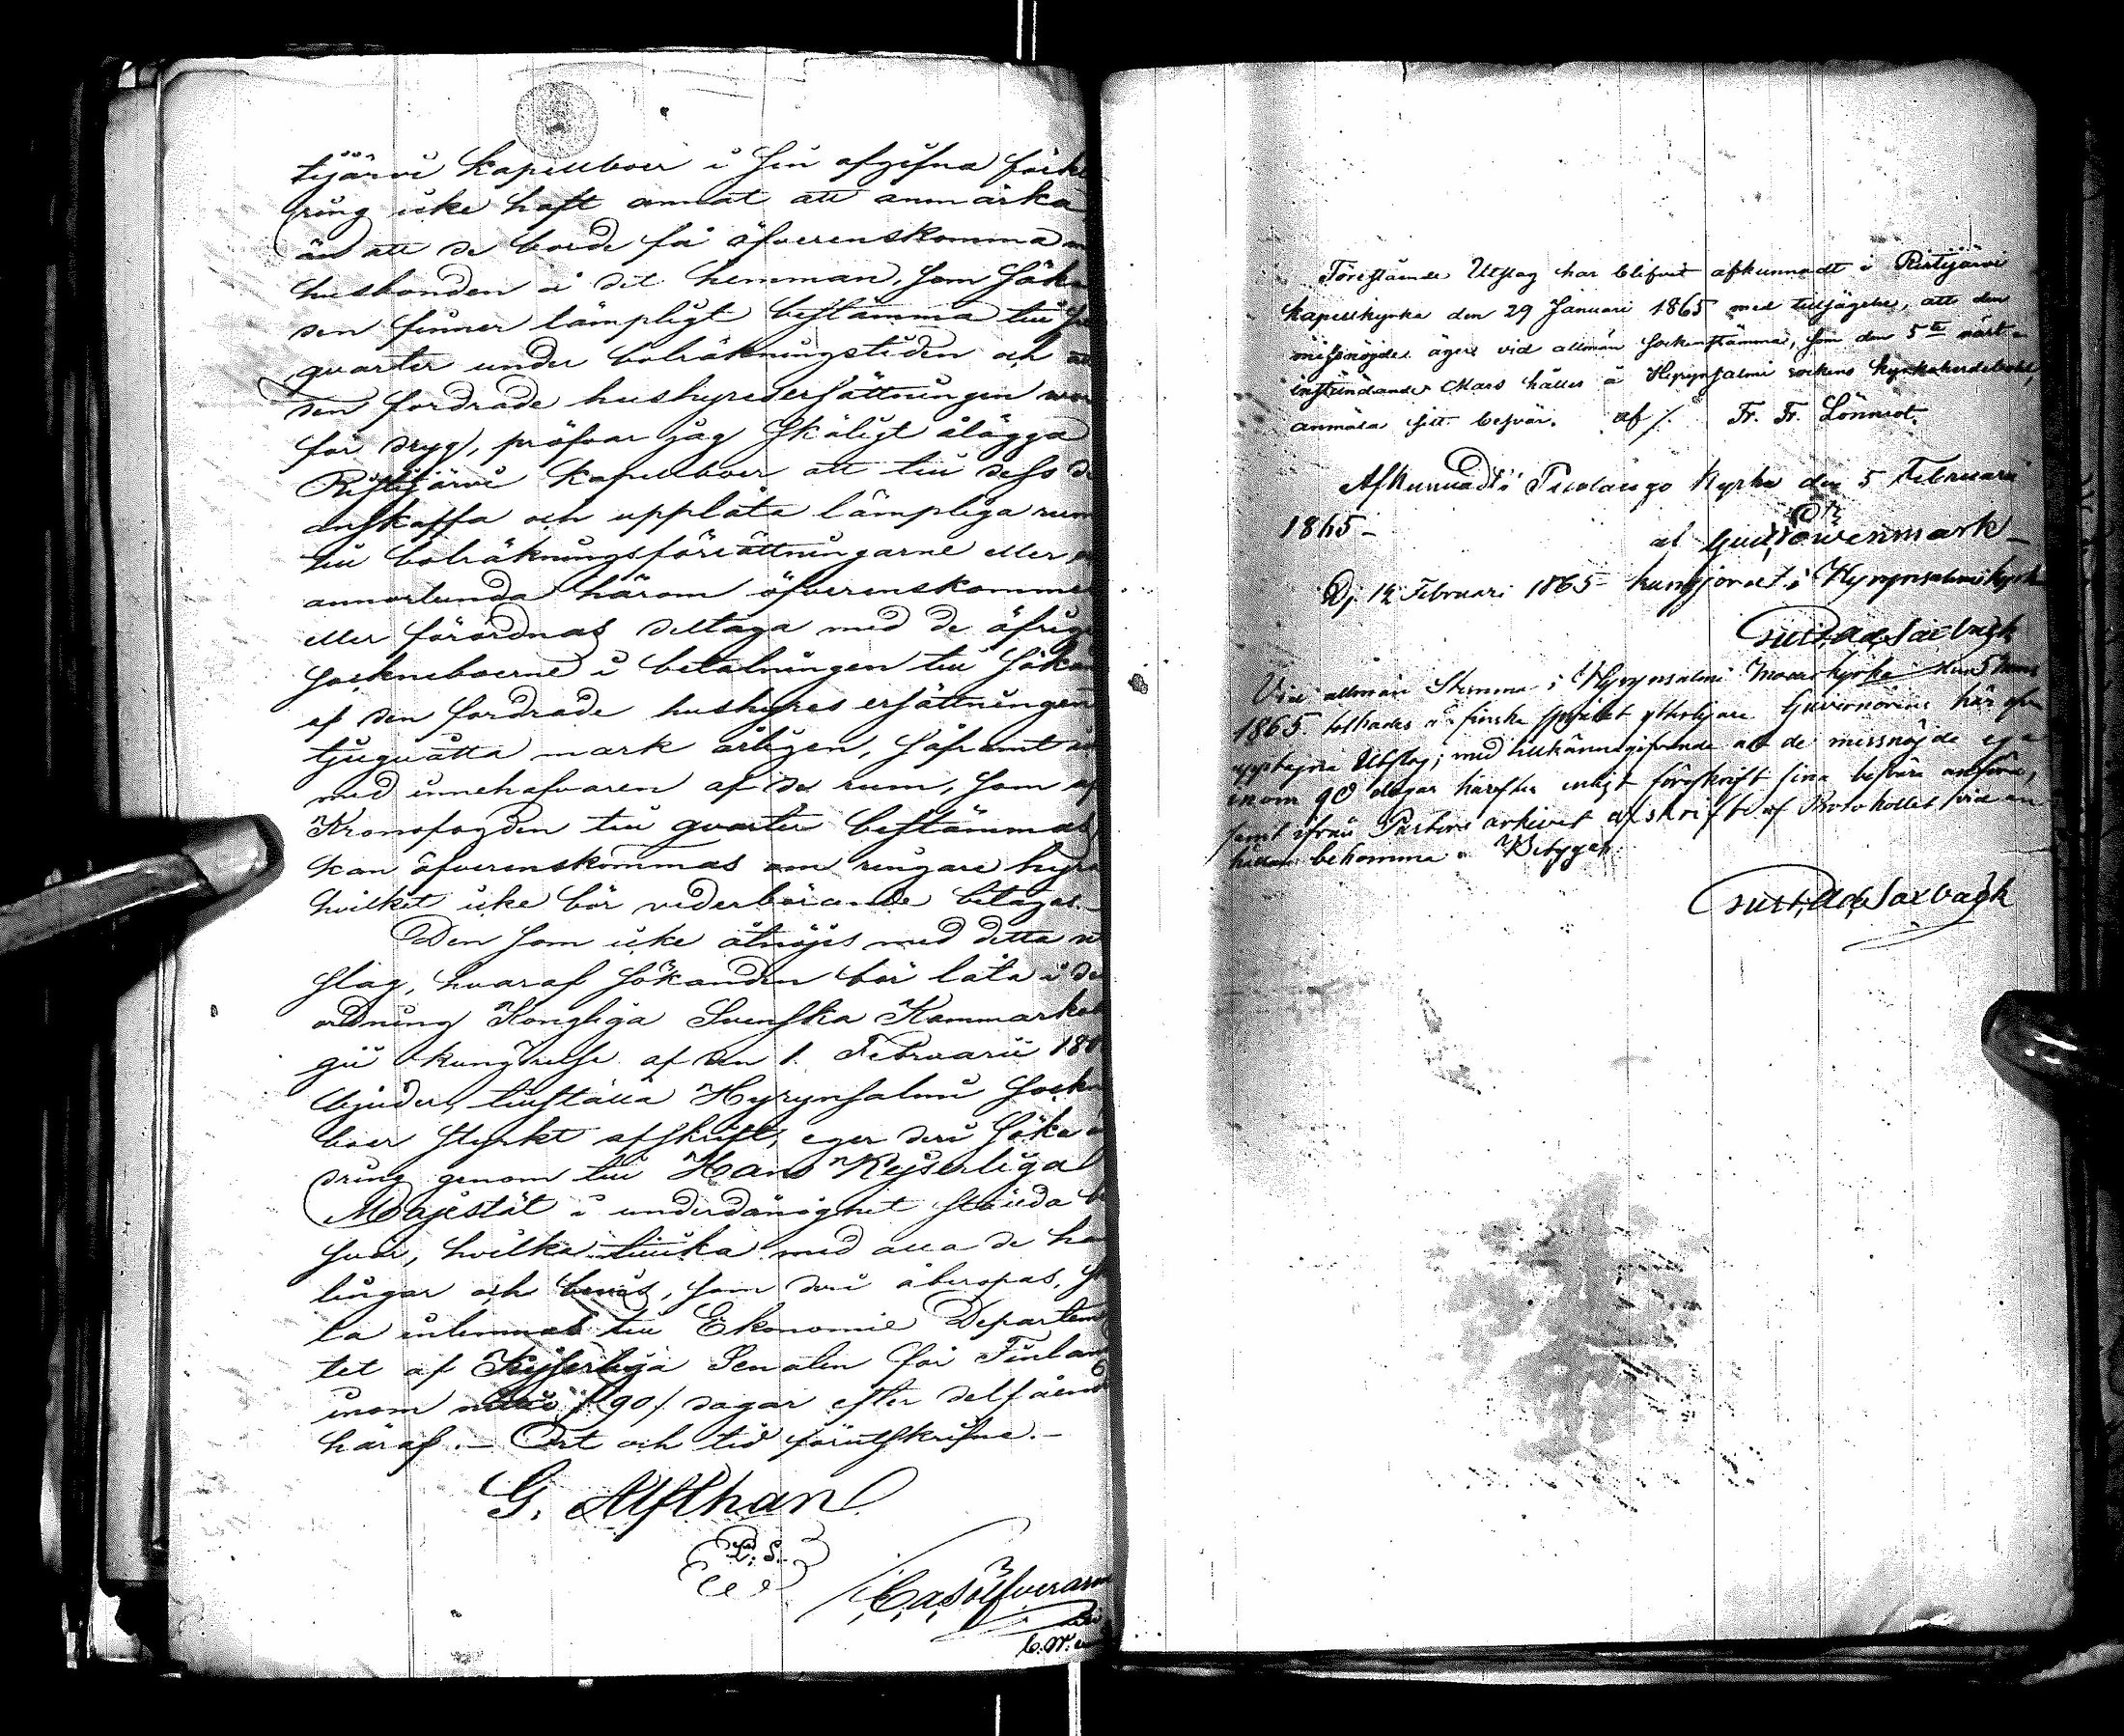 tijärvi kapellboer i sin afgifna förkla
ring icke haft annat att anmärka
än att de borde få öfverenskomma
husbonden å det hemman, som sökan
den finner lämpligt bestämma till
qvarter under bolräkningstiden och
den fordrade hushyresersättningen
för dryg, pröfvar jag skäligt ålägga
Ristijärvi kapellboer att till dess de
anskaffa och upplåta lämpliga rum
till bolräkningsförrättningarne eller
annorlunda härom öfverenskommes
eller förordnas deltaga med de öfriga
sockneboerne i betalningen till sökan
af den fordrade hushyres ersättningen
tjuguåtta mark årligen, såframt
med innehafvaren af de rum, som af
Kronofogden till qvarter bestämmas
kan öfverenskommas om ringare hyra
hvilket icke bör vederbörande betagas.–
Den som icke åtnöjes med detta ut
slag, hvaraf sökanden bör låta i den
ordning Kongliga Svenska Kammarkolle
gii kungörelse af den 1. Februarii 180
bjuder, tillställa Hyrynsalmi sockne
boer styrkt afskrift, eger deri söka än
dring genom till Hans Kejserliga
Majestät i underdånighet stälda be
svär, hvilka med alla de hand
lingar och bevis, som deri åberopas,
la inlemnas till Ekonomie Departemen
tet af Kejserliga Senaten för Finland
inom nitio /90/ dagar efter delfåendet
häraf.– Ort och tid förutskrifne.–
G. Alfthan
L. S.
Föreståendе Utslag har blifvit afkunnadt i Ristijärvi
kapellkyrka den 29 Januari 1865 med tillsägelse, att den
missnöjde äger vid allmän sockenstämma, som den 5te näst-
inträndande Mars hålles å Hyrynsalmi sockens kyrkoherdeboställ,
anmäla sitt besvär. af /. Fr. Fr. Lönnrot.
Afkunnadt i Puolango kyrka den 5 Februari
1865– af Gust. Löwenmark–
D. 12 Februari 1865– kungjordt i Hyrynsalmi kyrka
Gust. Ad. Saxbäck
Vid allmän Stämma i Hyrynsalmi Moderkyrka den 5 Mars
1865 tolkades å finska språket ytterligare Guvernörens här ofvan
upptagna Utslag; med tillkännagifvande att de missnöjde ega
inom 90 dagar härefter enligt föreskrift sina besvär anföra,
samt ifrån Pastors arkivet afskrift af Protokollet vid an
hållan bekomma. Betygar
Gust. Ad. Saxbäck